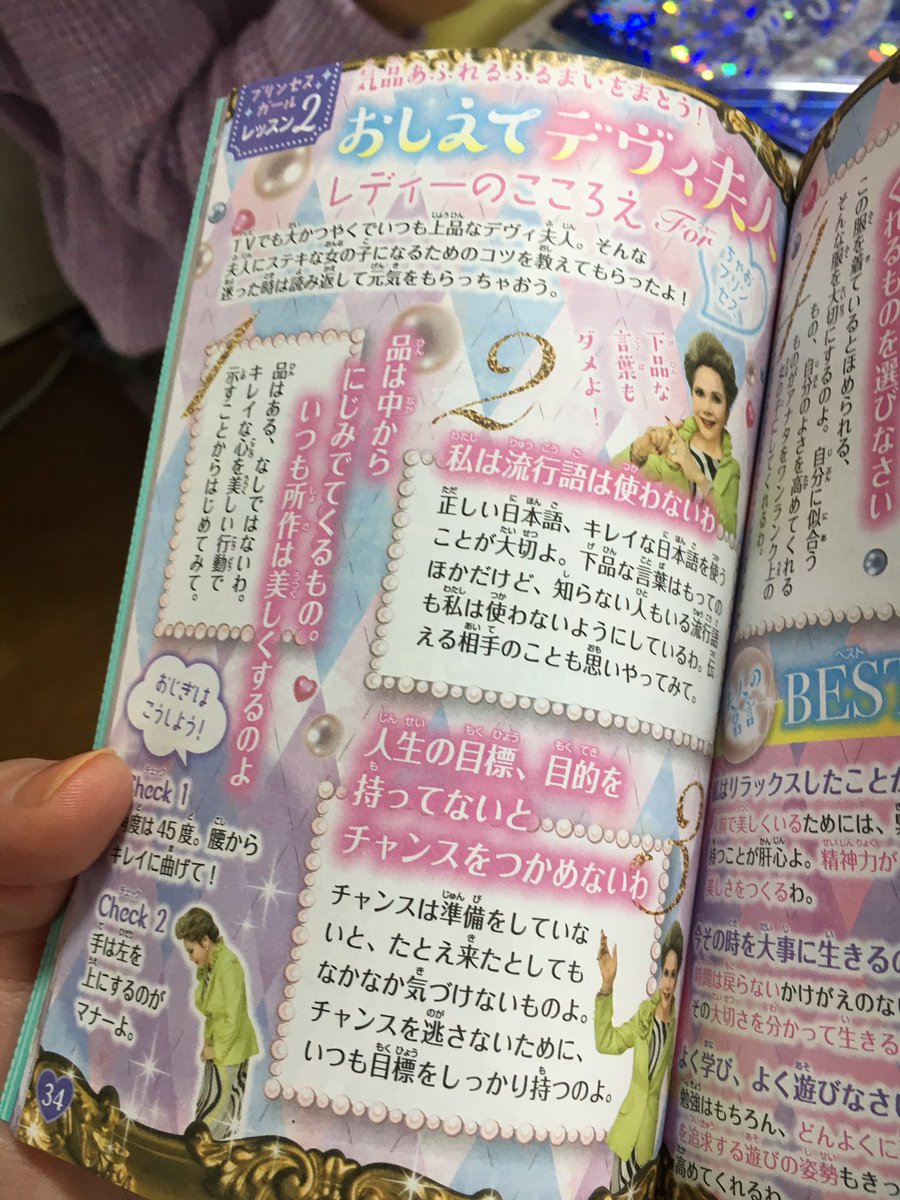 プリンセス
ガール
レッスン2
気品あふれるふるまいをまとう！
おしえてデヴィ夫人
レディーのこころえ For
ちゃお
プリン
セス
TVでも大かつやくでいつも上品なデヴィ夫人。そんな
夫人にステキな女の子になるためのコツを教えてもらったよ！
迷った時は読み返して元気をもらっちゃおう。
1
品は中から
にじみでてくるもの。
いつも所作は美しくするのよ
品はある、なしではないわ。
キレイな心を美しい行動で
示すことからはじめてみて。
おじぎは
こうしよう！
Check 1
角度は45度。腰から
キレイに曲げて！
Check 2
手は左を
上にするのが
マナーよ。
2
下品な
言葉も
ダメよ！
私は流行語は使わないわ
正しい日本語、キレイな日本語を使う
ことが大切よ。下品な言葉はもっての
ほかだけど、知らない人もいる流行語
も私は使わないようにしているわ。伝
える相手のことも思いやってみて。
3
人生の目標、目的を
持ってないと
チャンスをつかめないわ
チャンスは準備をしていな
いと、たとえ来たとしても
なかなか気づけないものよ。
チャンスを逃さないために、
いつも目標をしっかり持つのよ。
34
くれるものを選びなさい
この服を着ているとほめられる、
そんな服を大切にするのよ。自分に似合う
もの、自分のよさを高めてくれる
ものがアナタをワンランク上の
BEST
私はリラックスしたことが
人前で美しくいるためには、
持つことが肝心よ。精神力が
美しさをつくるわ。
今その時を大事に生きるの
時間は戻らないかけがえのない
その大切さを分かって生きる
よく学び、よく遊びなさい
勉強はもちろん、どんよくに
を追求する遊びの姿勢もきっ
高めてくれるわ